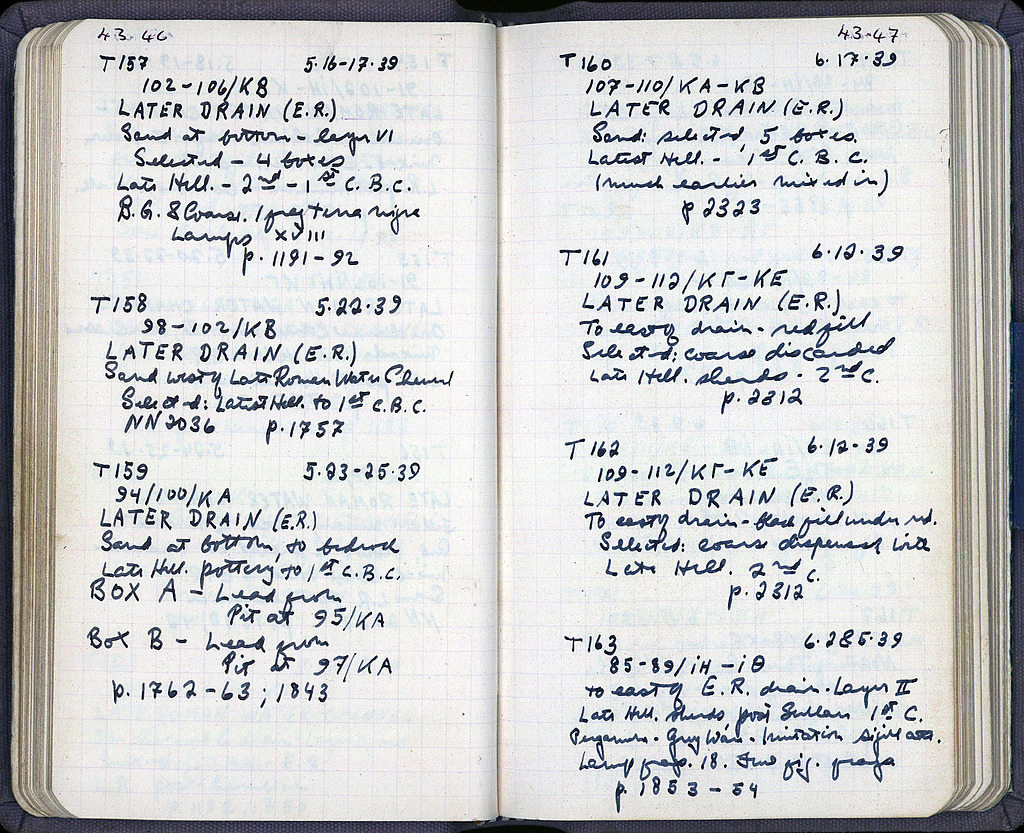 43-46
T157 5.16-17.39
102-106/KB
LATER DRAIN (E.R.)
Sand at bottom - layer VI
Selected - 4 boxes
Late Hell. - 2nd - 1st C. B.C.
B.G. & Coarse. 1 frag terra nigra
Lamps XVIII
p. 1191-92
T158 5.22.39
98-102/KB
LATER DRAIN (E.R.)
Sand west of Late Roman Water Channel
Selected: Latest Hell. to 1st C.B.C.
NN2036 p.1757
T159 5.23-25.39
94/100/KA
LATER DRAIN (E.R.)
Sand at bottom, to bedrock
Late Hell. pottery to 1st C.B.C.
BOX A - Lead from
Pit at 95/KA
Box B - Lead from
Pit at 97/KA
p. 1762-63; 1843
43-47
T160 6.17.39
107-110/KA-KB
LATER DRAIN (E.R.)
Sand: selected, 5 boxes.
Latest Hell. - 1st C. B. C.
(much earlier mixed in)
p 2323
T161 6.12.39
109-112/KΓ-KE
LATER DRAIN (E.R.)
To east of drain - red fill
Selected: coarse discarded
Late Hell. sherds - 2nd C.
p. 2312
T162 6.12.39
109-112/KΓ-KE
LATER DRAIN (E.R.)
To east of drain - black fill under red.
Selected: coarse dispensed with
Late Hell. 2nd C.
p. 2312
T163 6.285.39
85-89/iH-iΘ
to east of E.R. drain. Layer II
Late Hell. sherds, post Sullan 1st C.
Pergamene. Grey Ware. Imitation
Lamp frag. 18. Two fig. frags
p. 1853-54